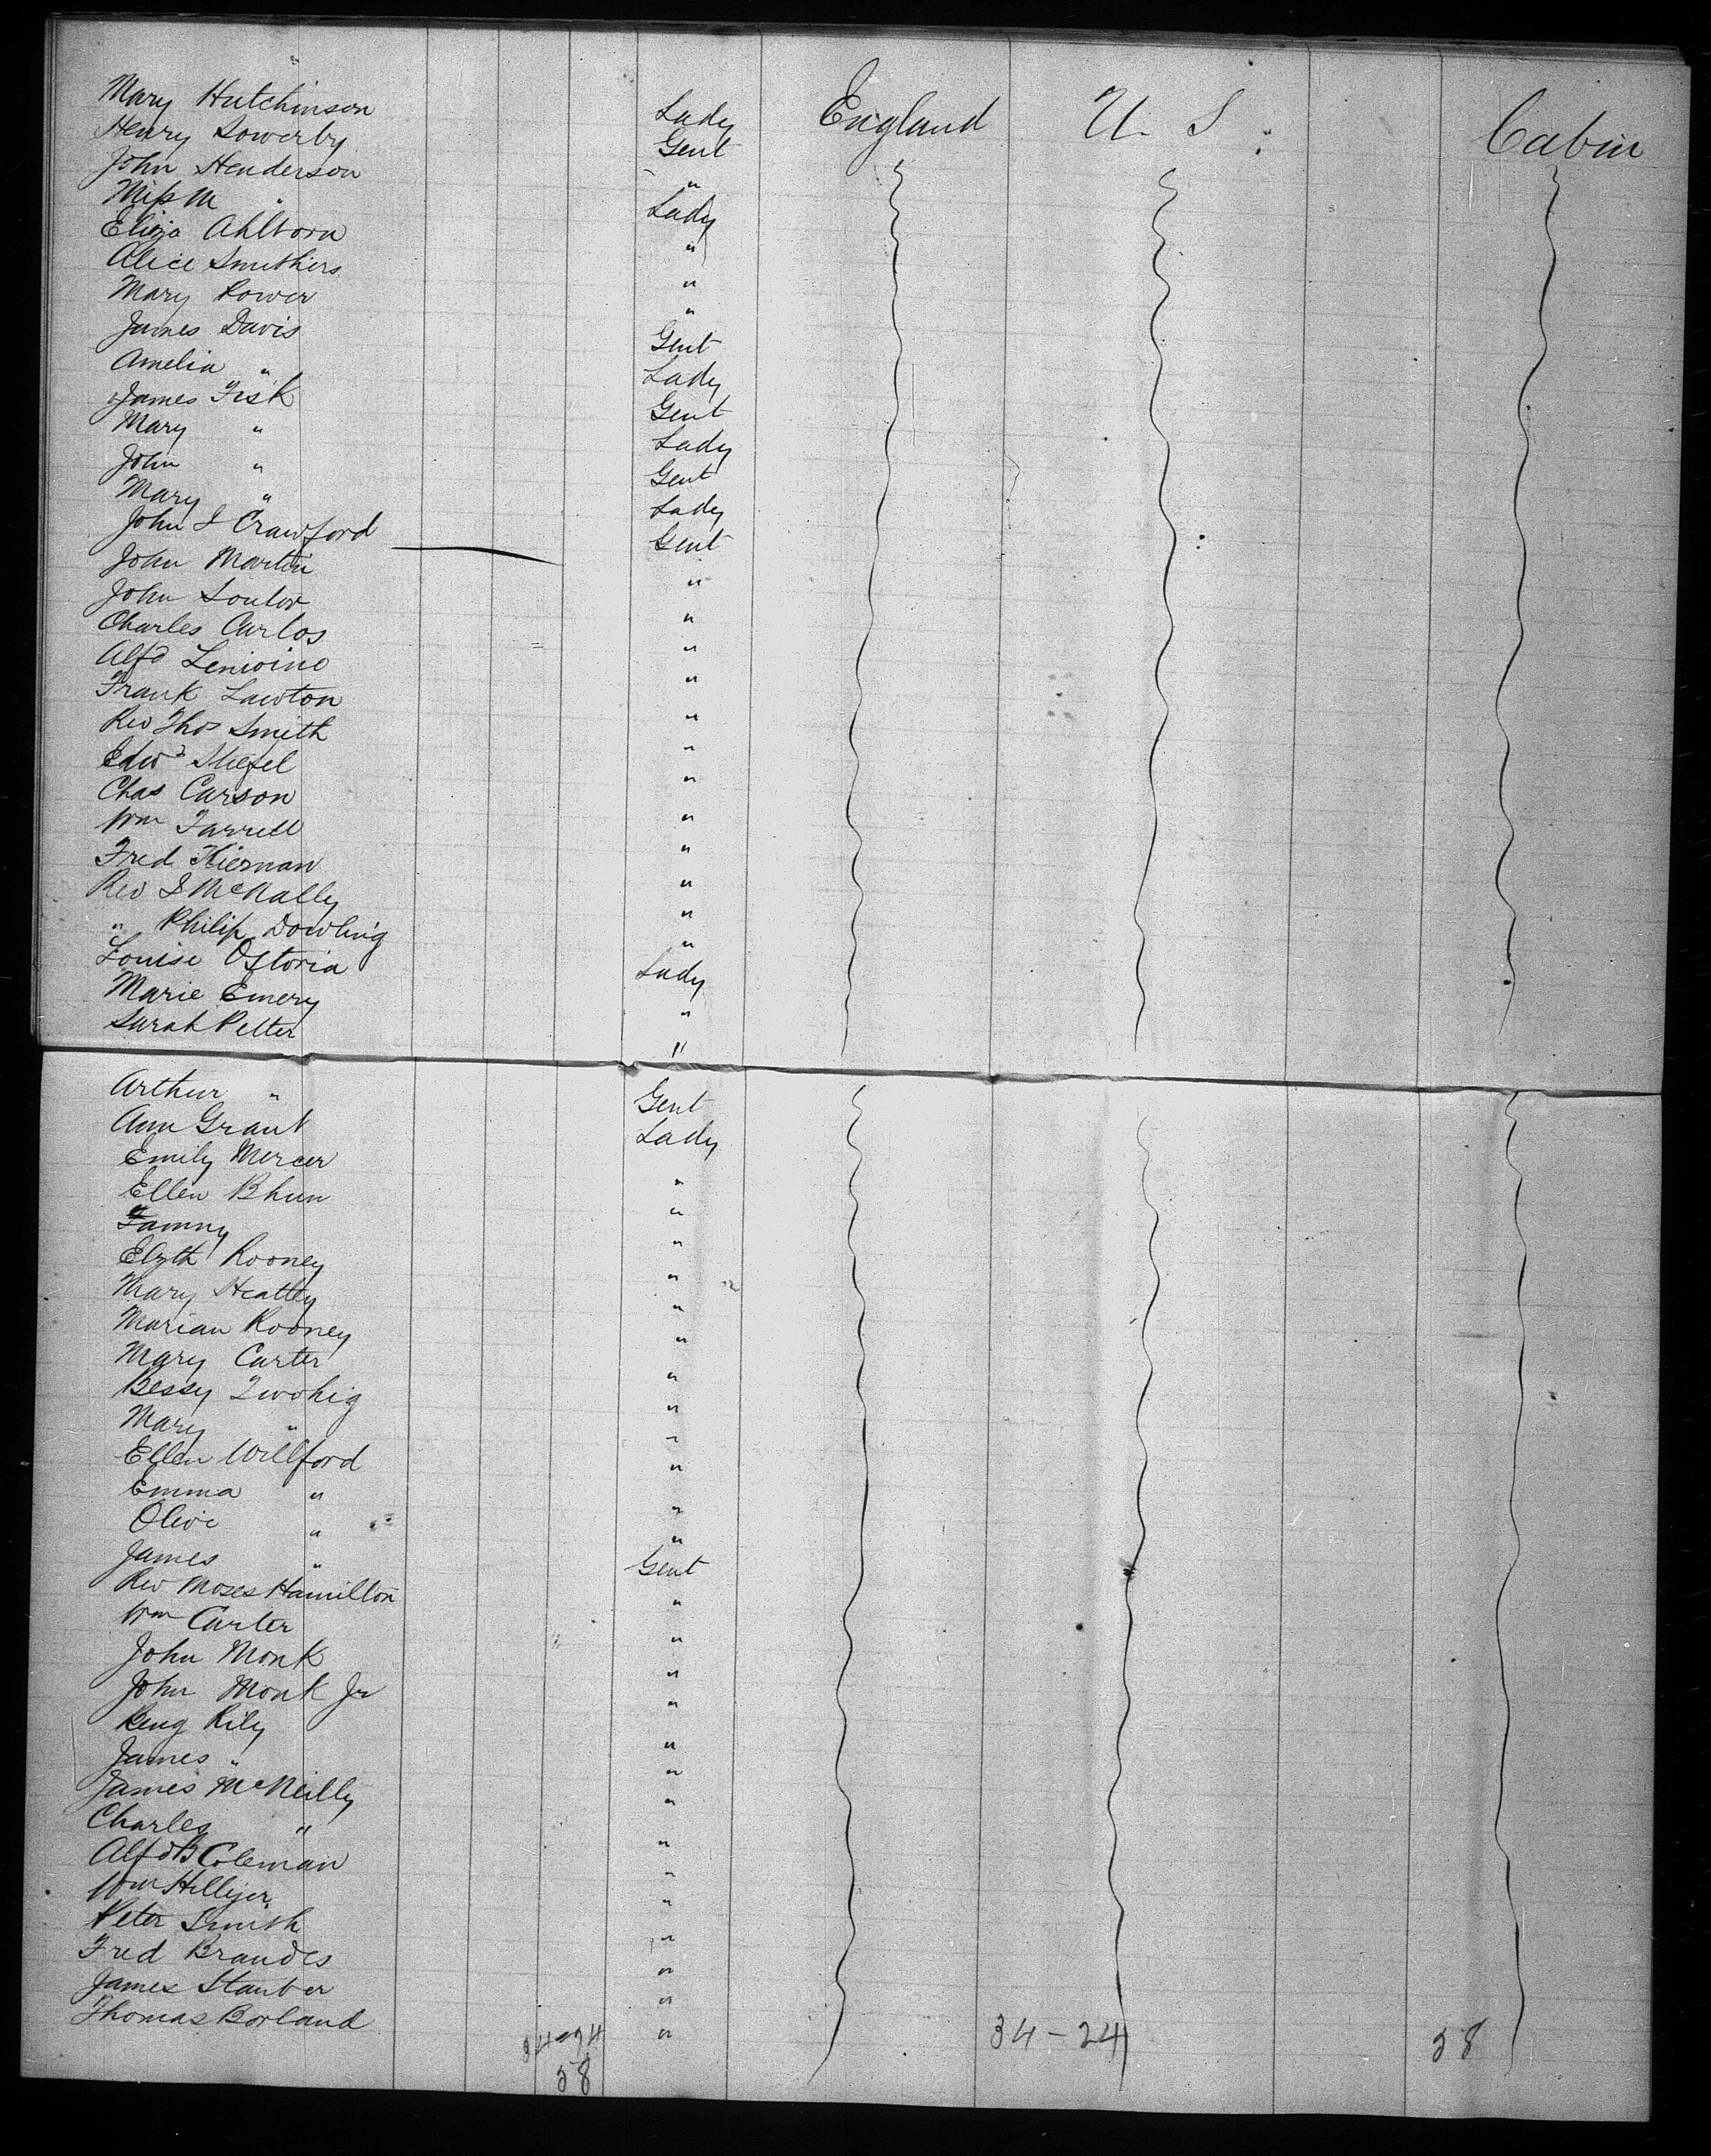 Mary Hutchinson Lady England U. S. Cabin
Henry Sowerby Gent
John Henderson "
Miss M " Lady
Eliza Ahlborn "
Alice Smithers "
Mary Power "
James Davis Gent
Amelia " Lady
James Fisk Gent
Mary " Lady
John " Gent
Mary " Lady
John S Crawford Gent
John Martin "
John Souter "
Charles Carlos "
Alfd "
Frank Lawton "
Rev Thos Smith "
Edwd Stiefel "
Chas Carson "
Wm Farrell "
Fred Kiernan "
Rev J McNally "
" Philip Dowling "
Louise Lady
Marie Emery "
Sarah Petter "
Arthur " Gent
Ann Grant Lady
Emily Mercer "
Ellen "
Fanny "
Elzth Rooney "
Mary Heatley "
Marian Rooney "
Mary Carter "
Bessy Twohig "
Mary " "
Ellen Willford "
Emma " "
Olive " "
James " Gent
Rev Moses Hamilton "
Wm Carter "
John Monk "
John Monk Jr "
Benj Rily "
James " "
James McNeilly "
Charles " "
Alfd B Coleman "
Wm Hillyer "
Peter Smith "
Fred Brandes "
James Stauber "
Thomas Borland "
34-24 34-24 58
58